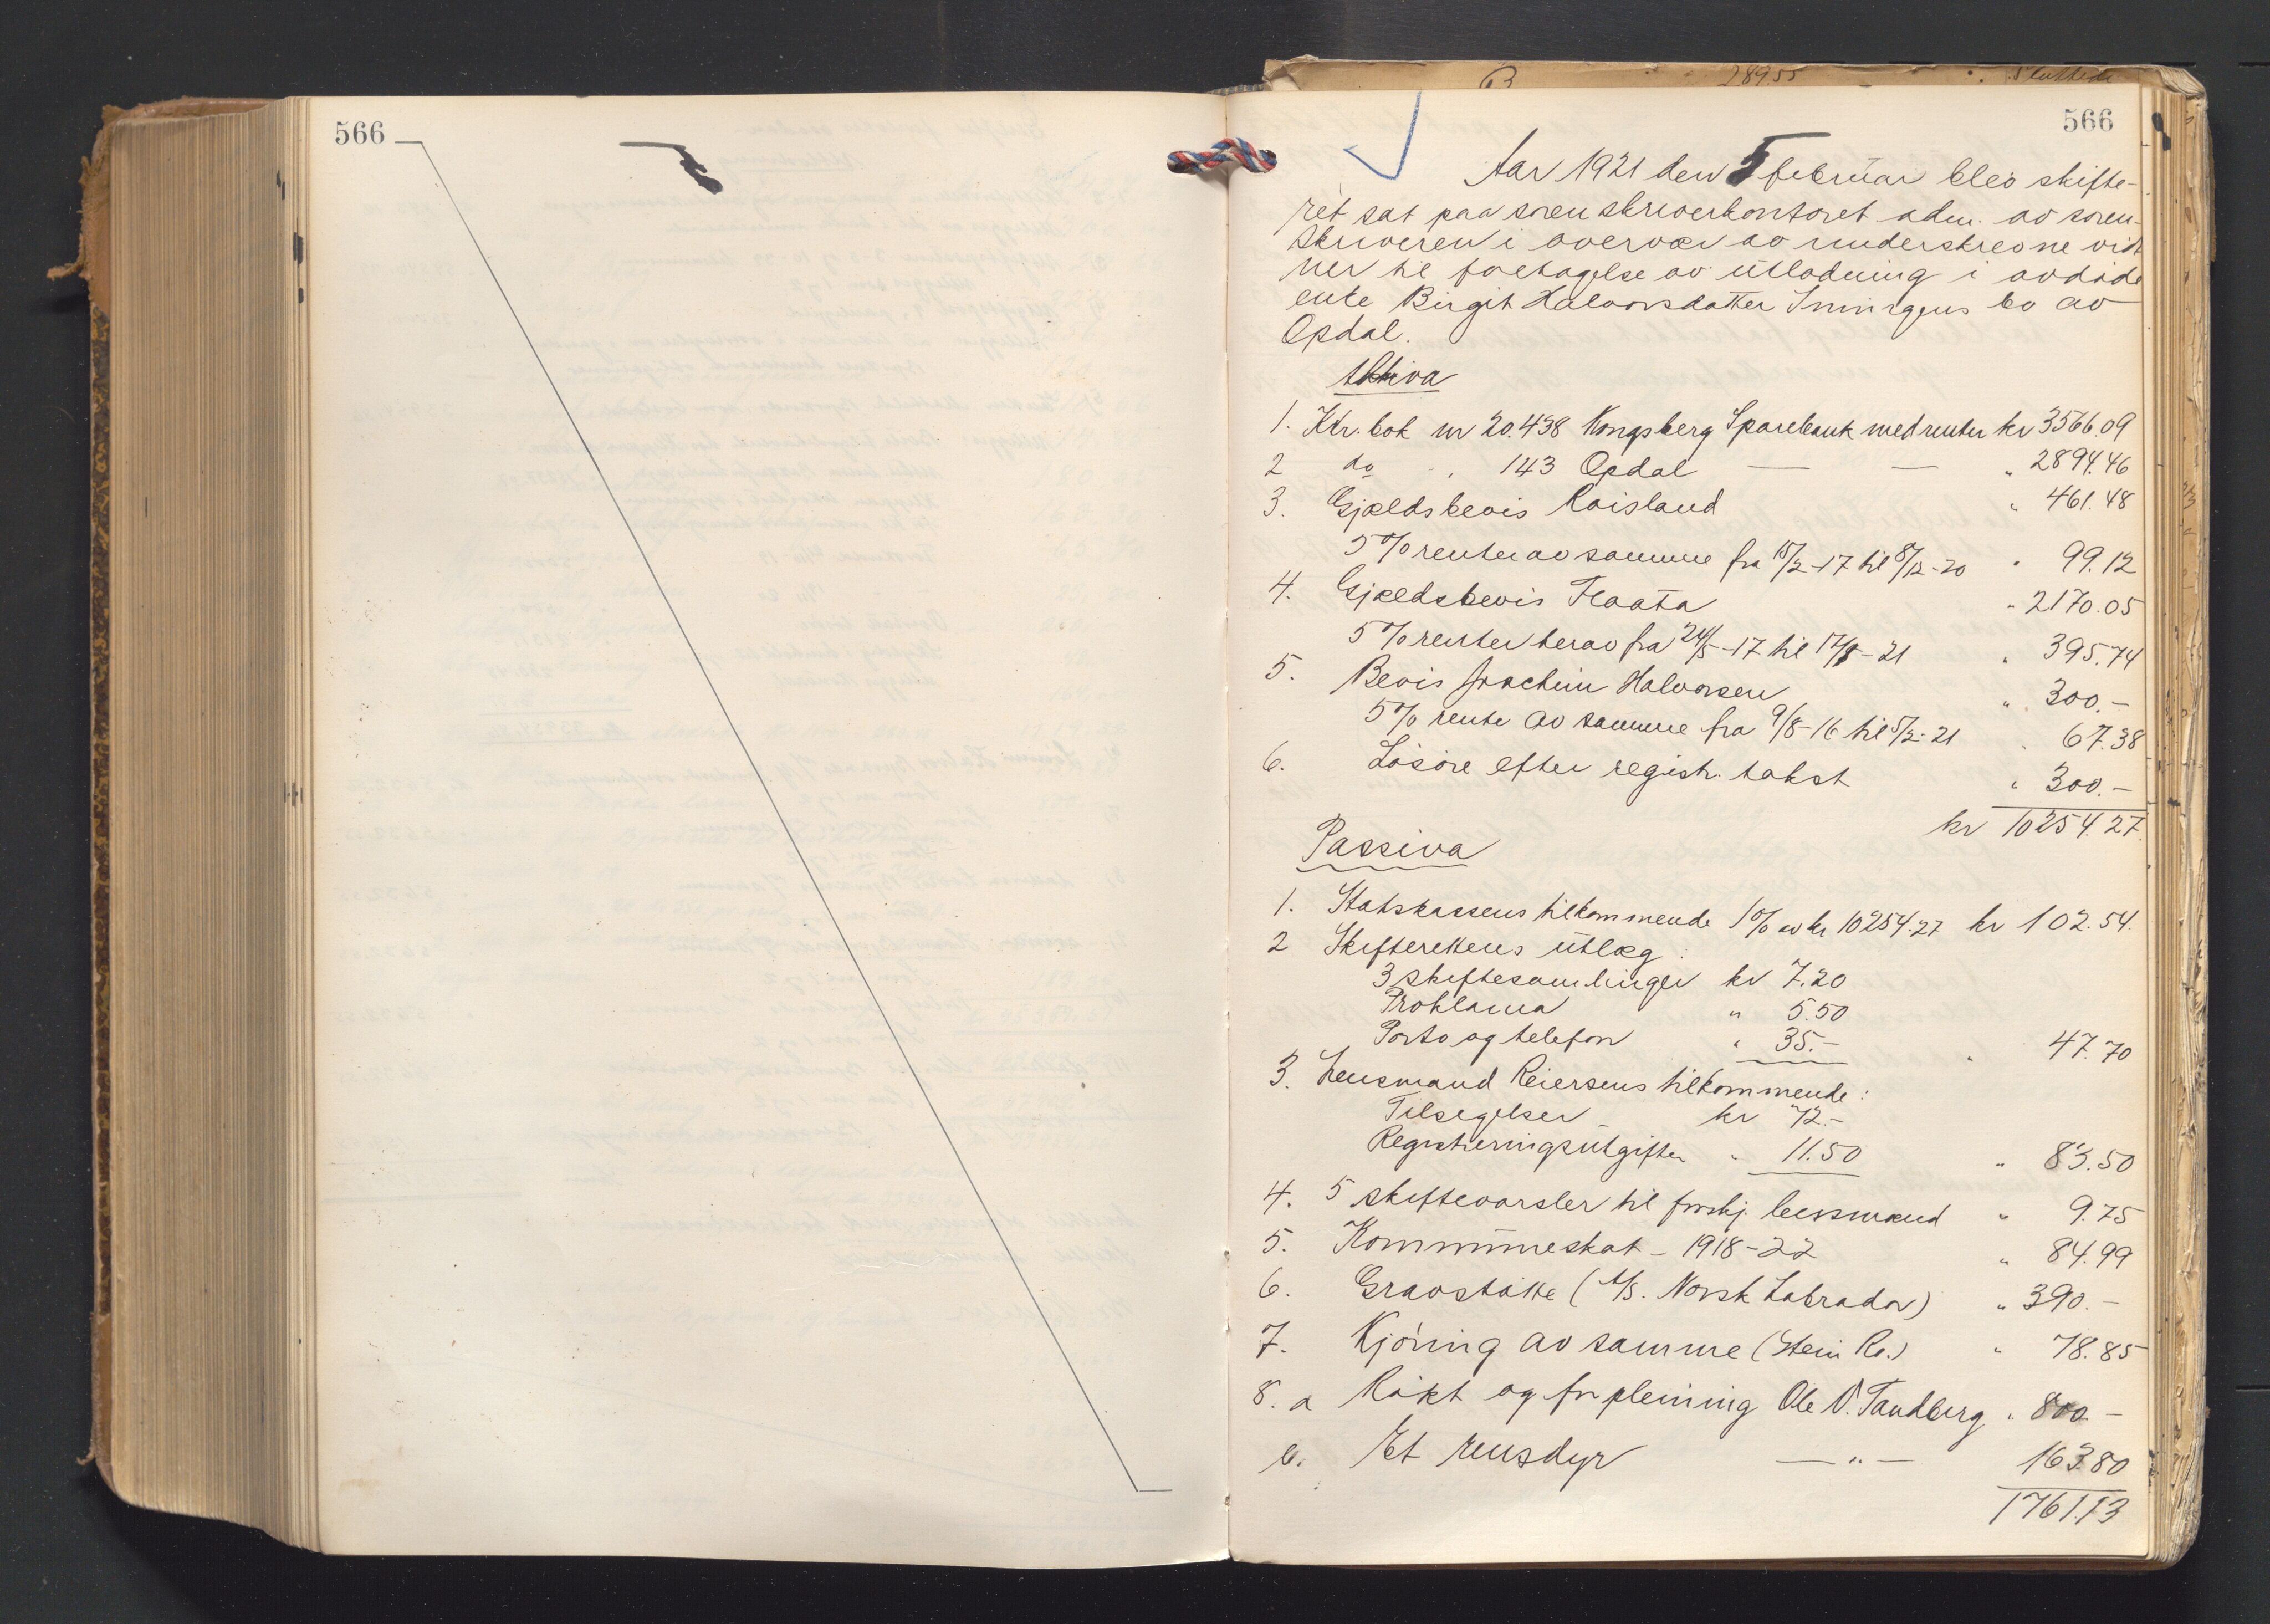 566
289.55
566
Aar 1921 den 5 februar blev skifte-
ret sat paa sorenskriverkontoret adm. av soren-
skriveren i overvær av underskrevne vid
ner til foretagelse av utlodning i avdøde
enke Birgit Halvorsdatter Immingens bo av
Opdal.
Aktiva
1. Ktr. bok nr 20.438 Kongsberg Sparebank med renter kr 3566.09
2 do " 143 Opdal — — " 2894.46
3. Gjældsbevis Raisland " 461.48
5 % renter av samme fra 15/2-17 til 8/12-20 " 99.12
4. Gjældsbevis Flaata " 2170.05
5 % renter herav fra 24/5-17 til 17/1-21 " 395.74
5. Bevis Joachim Halvorsen " 300.-
5 % rente av samme fra 9/8-16 til 5/2-21 " 67.38
6. Løsøre efter registr. takst " 300.-
kr 10254.27
Passiva
1. Statskassens tilkommende 1 % av kr 10254.27 kr 102.54.
2 Skifterettens utlæg:
3 skiftesamlinger kr 7.20
Proklama " 5.50
Porto og telefon " 35.- " 47.70
3. Lensmand Reiersens tilkommende:
Tilsigelser kr 72.-
Registreringsutgifter " 11.50 " 83.50
4. 5 skiftevarsler til forskj. lensmænd " 9.75
5. Kommuneskat - 1918-22 " 84.99
6. Gravstøtte (A/S. Norsk Labrador) " 390.-
7. Kjøring av samme (Stein Ro.) " 78.85
8. a Røkt og forpleining Ole O. Tandberg " 800.-
b. Et rensdyr — " — 163.80
1761.13